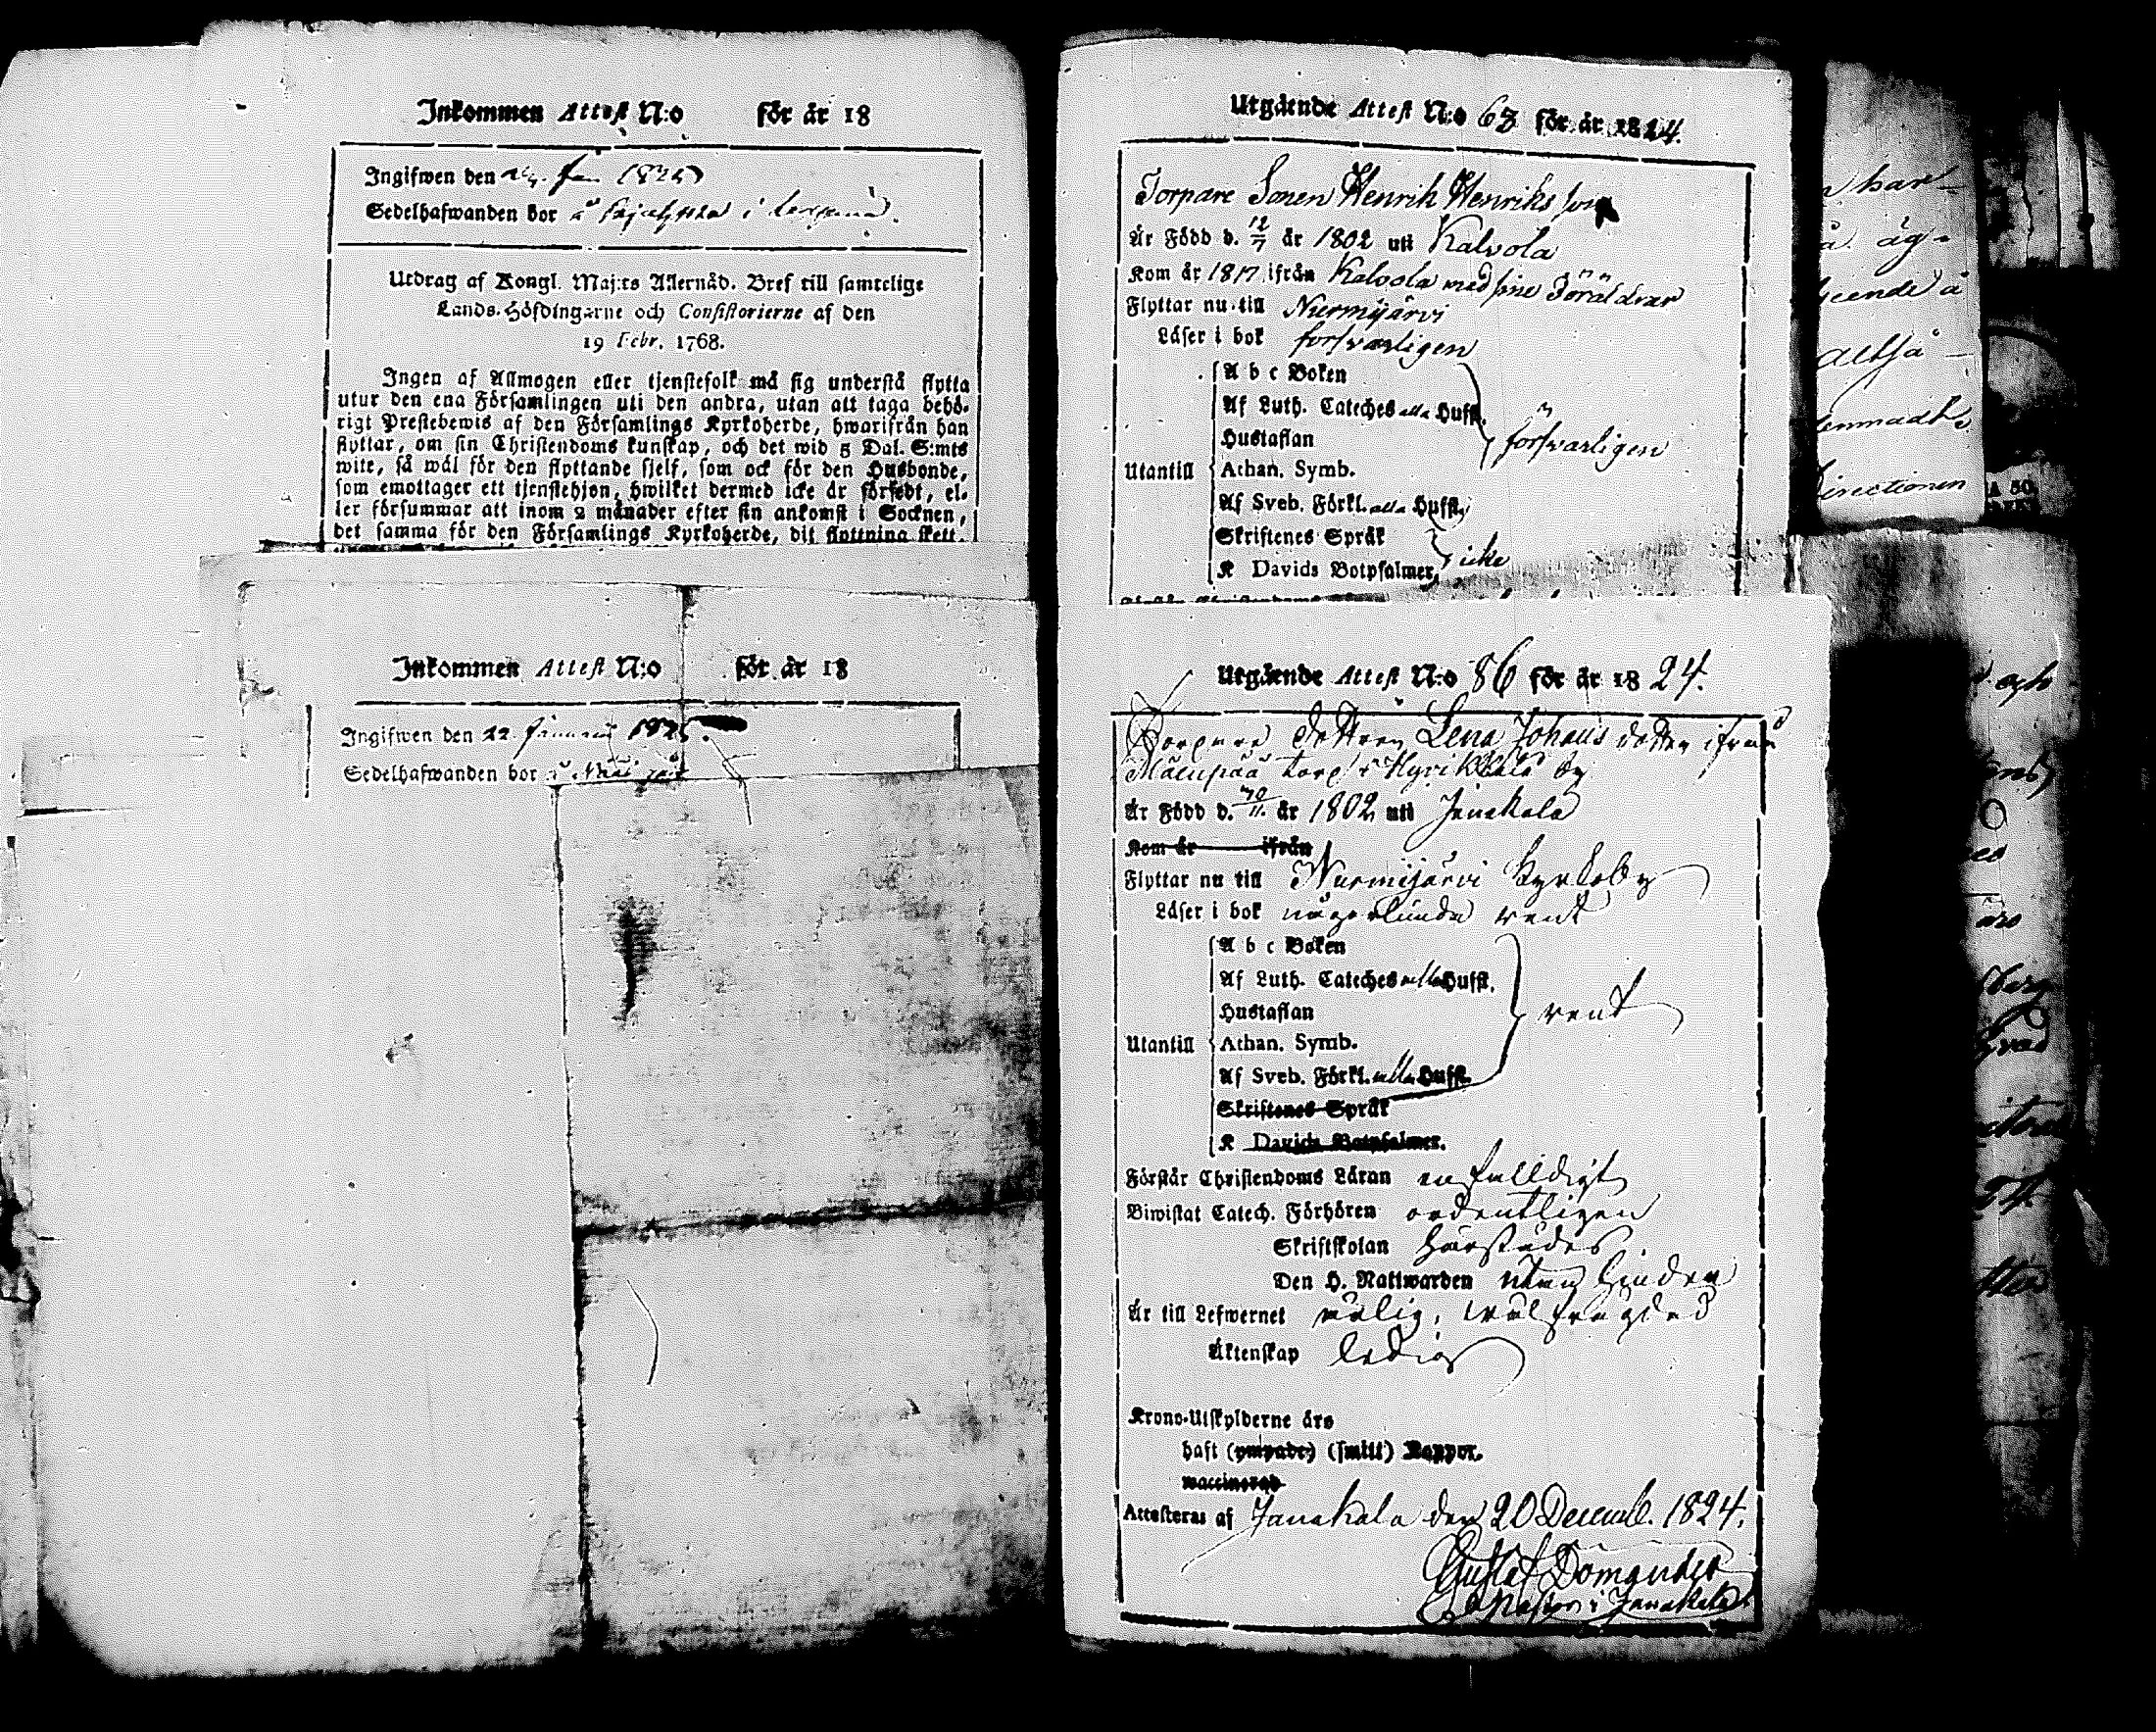 Inkommen Attest N:o för år 18
Ingifwen den 24. Jan 1825
Sedelhafwanden bor å i
Utdrag af Kongl. Maj:ts Allernåd. Bref till samtelige
Lands-Höfdingarne och Consistorierne af den
19 Febr. 1768.
Ingen af Allmogen eller tjenstefolk må sig understå flytta
utur den ena Församlingen uti den andra, utan att taga behö-
rigt Prestebewis af den Församlings Kyrkoherde, hwarifrån han
flyttar, om sin Christendoms kunskap, och det wid 5 Dal. S:mts
wite, så wål för den flyttande sjelf, som ock för den Husbonde,
som emottager ett tjenstehjon, hwilket dermed icke är försedt, el-
ler försummar att inom 2 månader efter sin ankomst i Socknen,
det samma för den Församlings Kyrkoherde, dit flyttning skett.
Inkommen Attest N:o för år 18
Ingifwen den 22 Januari 1825.
Sedelhafwanden bor å
Utgående Attest N:o 63 för år 1824.
Torpare Sonen Henrik Henriks son
År Född d. 12/7 år 1802 uti Kalvola
Kom år 1817 ifrån Kalvola med sine Föräldrar
Flyttar nu till Nurmijärvi
Låser i bok försvarligen
A b c Boken
Af Luth. Cateches alla Hufst.
Hustaflan försvarligen
Utantill Athan. Symb.
Af Sveb. Förkl. alla Hufst.
Skriftenes Språk
K Davids Botpsalmer, icke
Utgående Attest N:o 86 för år 1824.
Torpare Dottren Lena Johans dotter ifrån
torp i by
År Född d. 30/11. år 1802 uti Janakala
Kom år ifrån
Flyttar nu till Nurmijärvi Kyrkoby
Låser i bok någorlunda rent
A b c Boken
Af Luth. Cateches alla Hufst.
Hustaflan rent
Utantill Athan. Symb.
Af Sveb. Förkl. alla Hufst.
Skriftenes Språk
K Davids Botpsalmer.
Förstår Christendoms Läran enfalldigt
Biwistat Catech. Förhören ordentligen
Skriftskolan härstädes
Den H. Nattwarden utan hinder
År till Lefwernet ärlig, wälfrägdad
Äktenskap ledig
Krono-Utskylderne års
haft (ympade) (smitt) Koppor.
waccinerad
Attesteras af Janakala den 20 Decemb. 1824.
Gustaf Domander
i Janakala
har
äg-
altså
Directionen
och